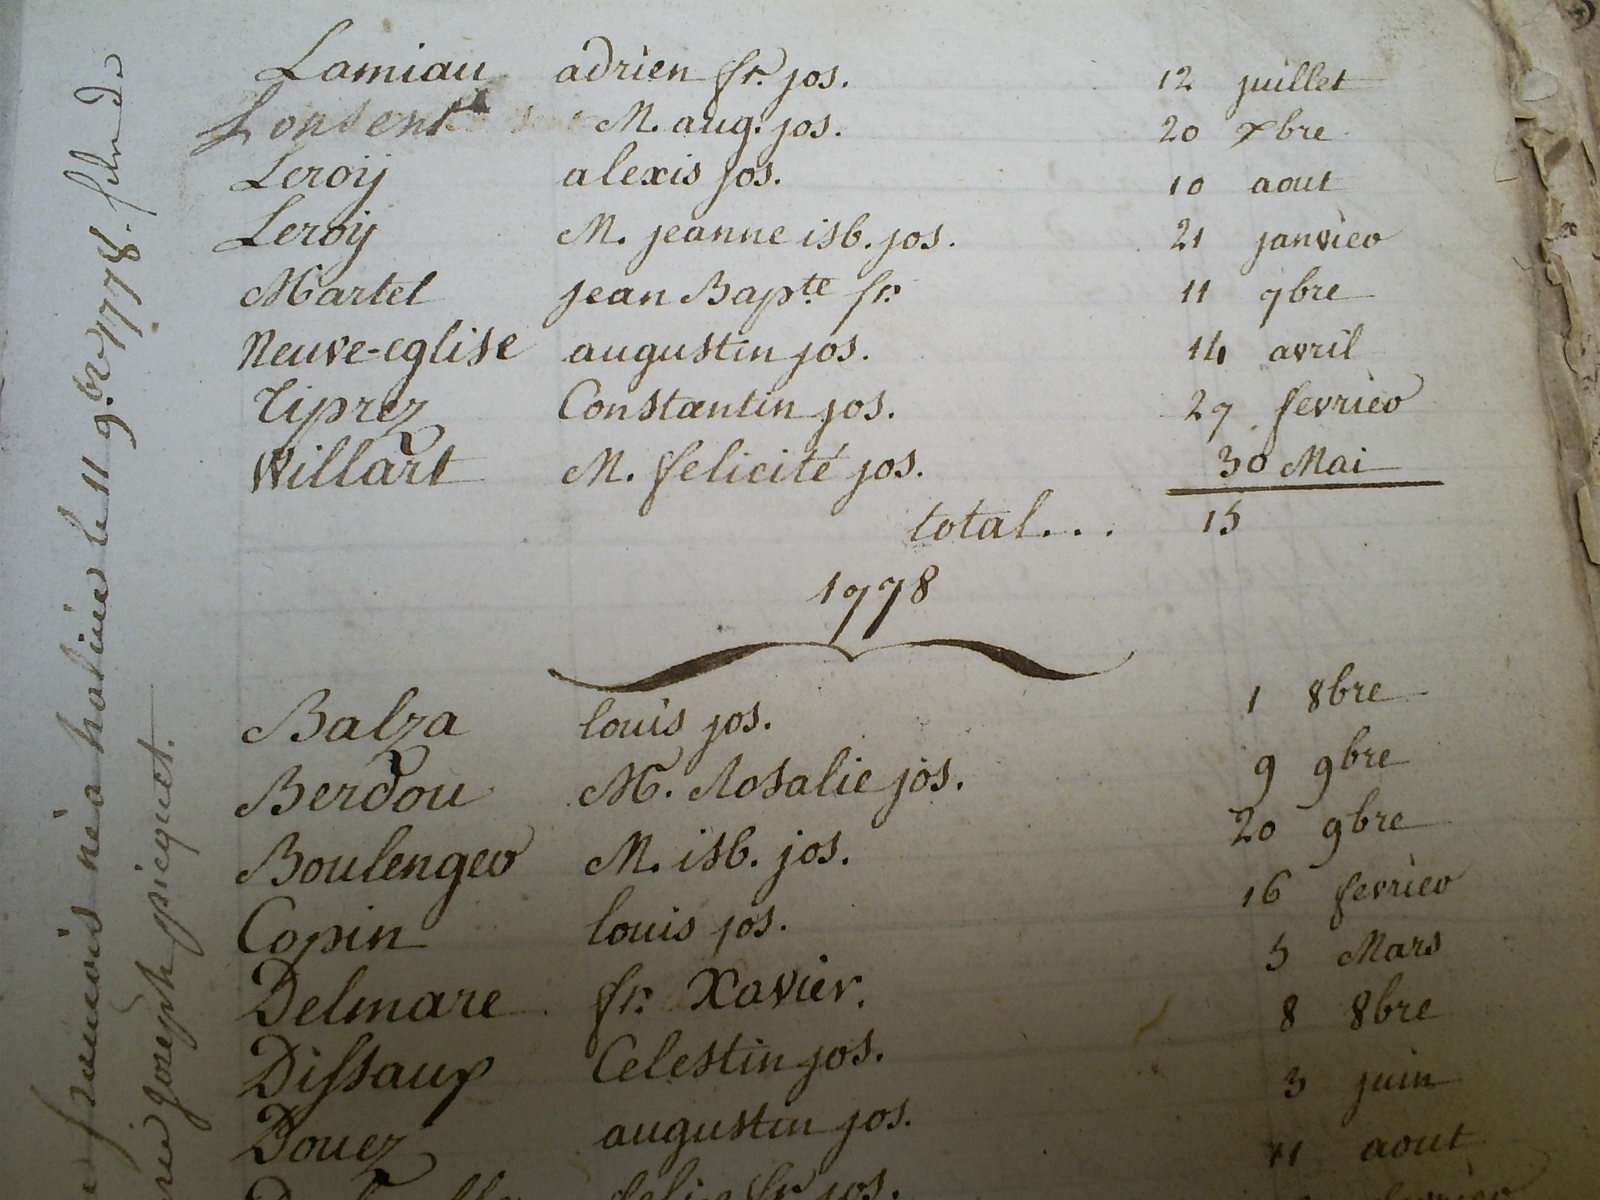 Lamiau adrien fr. jos. 12 juillet
M. aug. jos. 20 xbre
Leroij alexis jos. 10 aout
Leroij M. jeanne isb. jos. 21 janvier
Martel jean Bapte fr. 11 9bre
Neuve-eglise augustin jos. 14 avril
Tiprez Constantin jos. 27 fevrier
Willart M. felicité jos. 30 Mai
total... 15
1778
Balza louis jos. 1 8bre
Berdou M. Rosalie jos. 9 9bre
Boulenger M. isb. jos. 20 9bre
Copin louis jos. 16 fevrier
Delmare fr. Xavier. 5 Mars
Dissaux Celestin jos. 8 8bre
Douez augustin jos. 3 juin
fr. jos. 11 aout
francois né a haline le 11 9.bre 1778. fils de
joseph picquet.